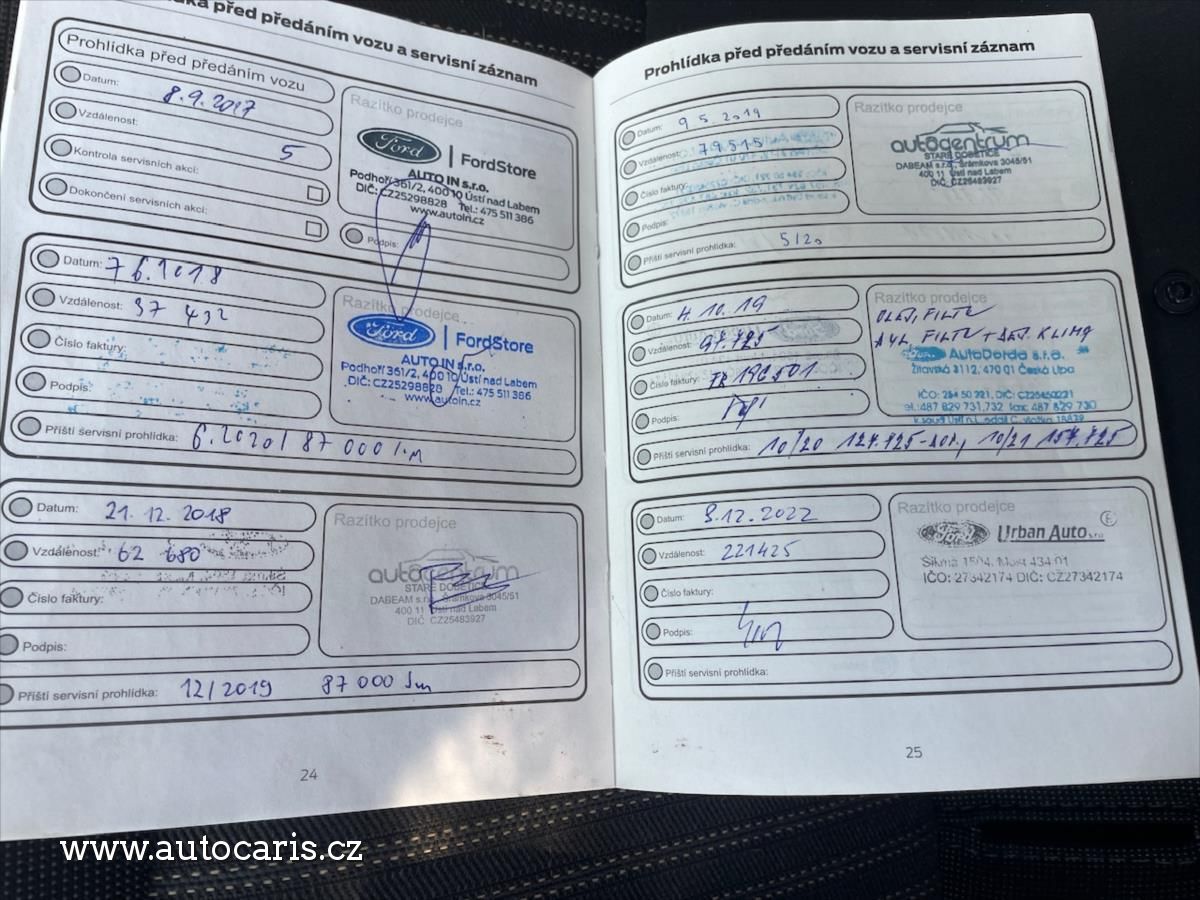 Prohlídka před předáním vozu a servisní záznam
Prohlídka před předáním vozu
Datum: 8.9.2017
Vzdálenost: 5
Kontrola servisních akcí:
Dokončení servisních akcí:
Razítko prodejce
Ford | FordStore
AUTO IN s.r.o.
Podhoří 361/2, 400 10 Ústí nad Labem
DIČ: CZ25298828 Tel.: 475 511 386
www.autoin.cz
Podpis:
Datum: 7 6.2018
Vzdálenost: 37 432
Číslo faktury:
Podpis:
Příští servisní prohlídka: 6.2020/ 87 000 km
Razítko prodejce
Ford | FordStore
AUTO IN s.r.o.
Podhoří 361/2, 400 10 Ústí nad Labem
DIČ: CZ25298828 Tel.: 475 511 386
www.autoin.cz
Datum: 21.12.2018
Vzdálenost: 62 680
Číslo faktury:
Podpis:
Příští servisní prohlídka: 12/2019 87 000 km
Razítko prodejce
autocentrum
STARÉ DOBĚTICE
DABEAM s.r.o., Šrámkova 3045/51
400 11 Ústí nad Labem
DIČ: CZ25483927
24
Prohlídka před předáním vozu a servisní záznam
Datum: 9 5.2019
Vzdálenost: 79515
Číslo faktury:
Podpis:
Příští servisní prohlídka: 5/20
Razítko prodejce
autocentrum
STARÉ DOBĚTICE
DABEAM s.r.o., Šrámkova 3045/51
400 11 Ústí nad Labem
DIČ: CZ25483927
Datum: 4.10.19
Vzdálenost: 97.725
Číslo faktury:
Podpis:
Příští servisní prohlídka: 10/20 127.725 10/21 157.725
Razítko prodejce
OLEJ, FILTR
FILTR + KLIMA
Ford AutoDorda s.r.o.
Žitavská 3112, 470 01 Česká Lípa
tel.:487 829 731,732 fax: 487 829 730
Datum: 8.12.2022
Vzdálenost: 221425
Číslo faktury:
Podpis:
Příští servisní prohlídka:
Razítko prodejce
Ford Urban Auto s.r.o.
Most 434 01
IČO: 27342174 DIČ: CZ27342174
25
www.autocaris.cz